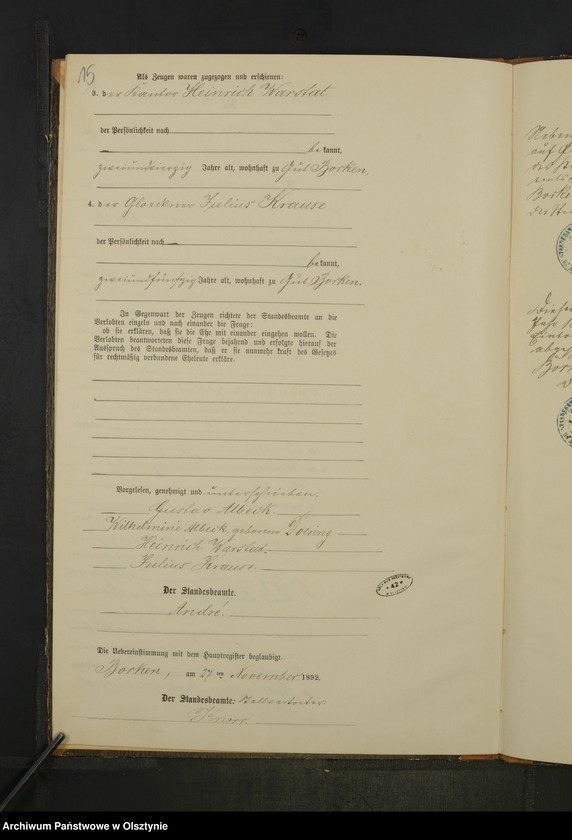 15
Als Zeugen waren zugezogen und erschienen:
3. der Kantor Heinrich Warstat
der Persönlichkeit nach
bekannt,
zweiundvierzig Jahre alt, wohnhaft zu Gut Borken,
4. der Gloeckner Julius Krause
der Persönlichkeit nach
bekannt,
zweiundfünfzig Jahre alt, wohnhaft zu Gut Borken.
In Gegenwart der Zeugen richtete der Standesbeamte an die
Verlobten einzeln und nach einander die Frage:
ob sie erklären, daß sie die Ehe mit einander eingehen wollen. Die
Verlobten beantworteten diese Frage bejahend und erfolgte hierauf der
Ausspruch des Standesbeamten, daß er sie nunmehr kraft des Gesetzes
für rechtmäßig verbundene Eheleute erkläre.
Vorgelesen, genehmigt und unterschrieben.
Gustav Albeck
Wilhelmine Albeck geborene Doering
Heinrich Warstat
Julius Krause.
Der Standesbeamte.
André.
42
Die Uebereinstimmung mit dem Hauptregister beglaubigt.
Borken, am 27 ten November 1892.
Der Standesbeamte: Stellvertreter
Knorr
Neben
auf
Borke
der Sta
Diese
Jahr
abge
Bor
Archiwum Państwowe w Olsztynie